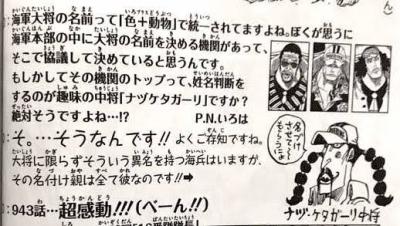 海軍大将の名前って「色+動物」で統一されてますよね。ぼくが思うに
海軍本部の中に大将の名前を決める機関があって、
そこで協議していると思うんです。
もしかしてその機関のトップって、姓名判断を
するのが趣味の中将「ナヅケタガーリ」ですか?
絶対そうですよね…!? P.N.いろは
そ。…そうなんです!! よくご存知ですね。
大将に限らずそういう異名を持つ海兵はいますが、
その名付け親は全て彼なのです!!➡
943話…超感動!!!(べーん!!)
名づけ
させて〜
ナヅ・ケタガーリ中将